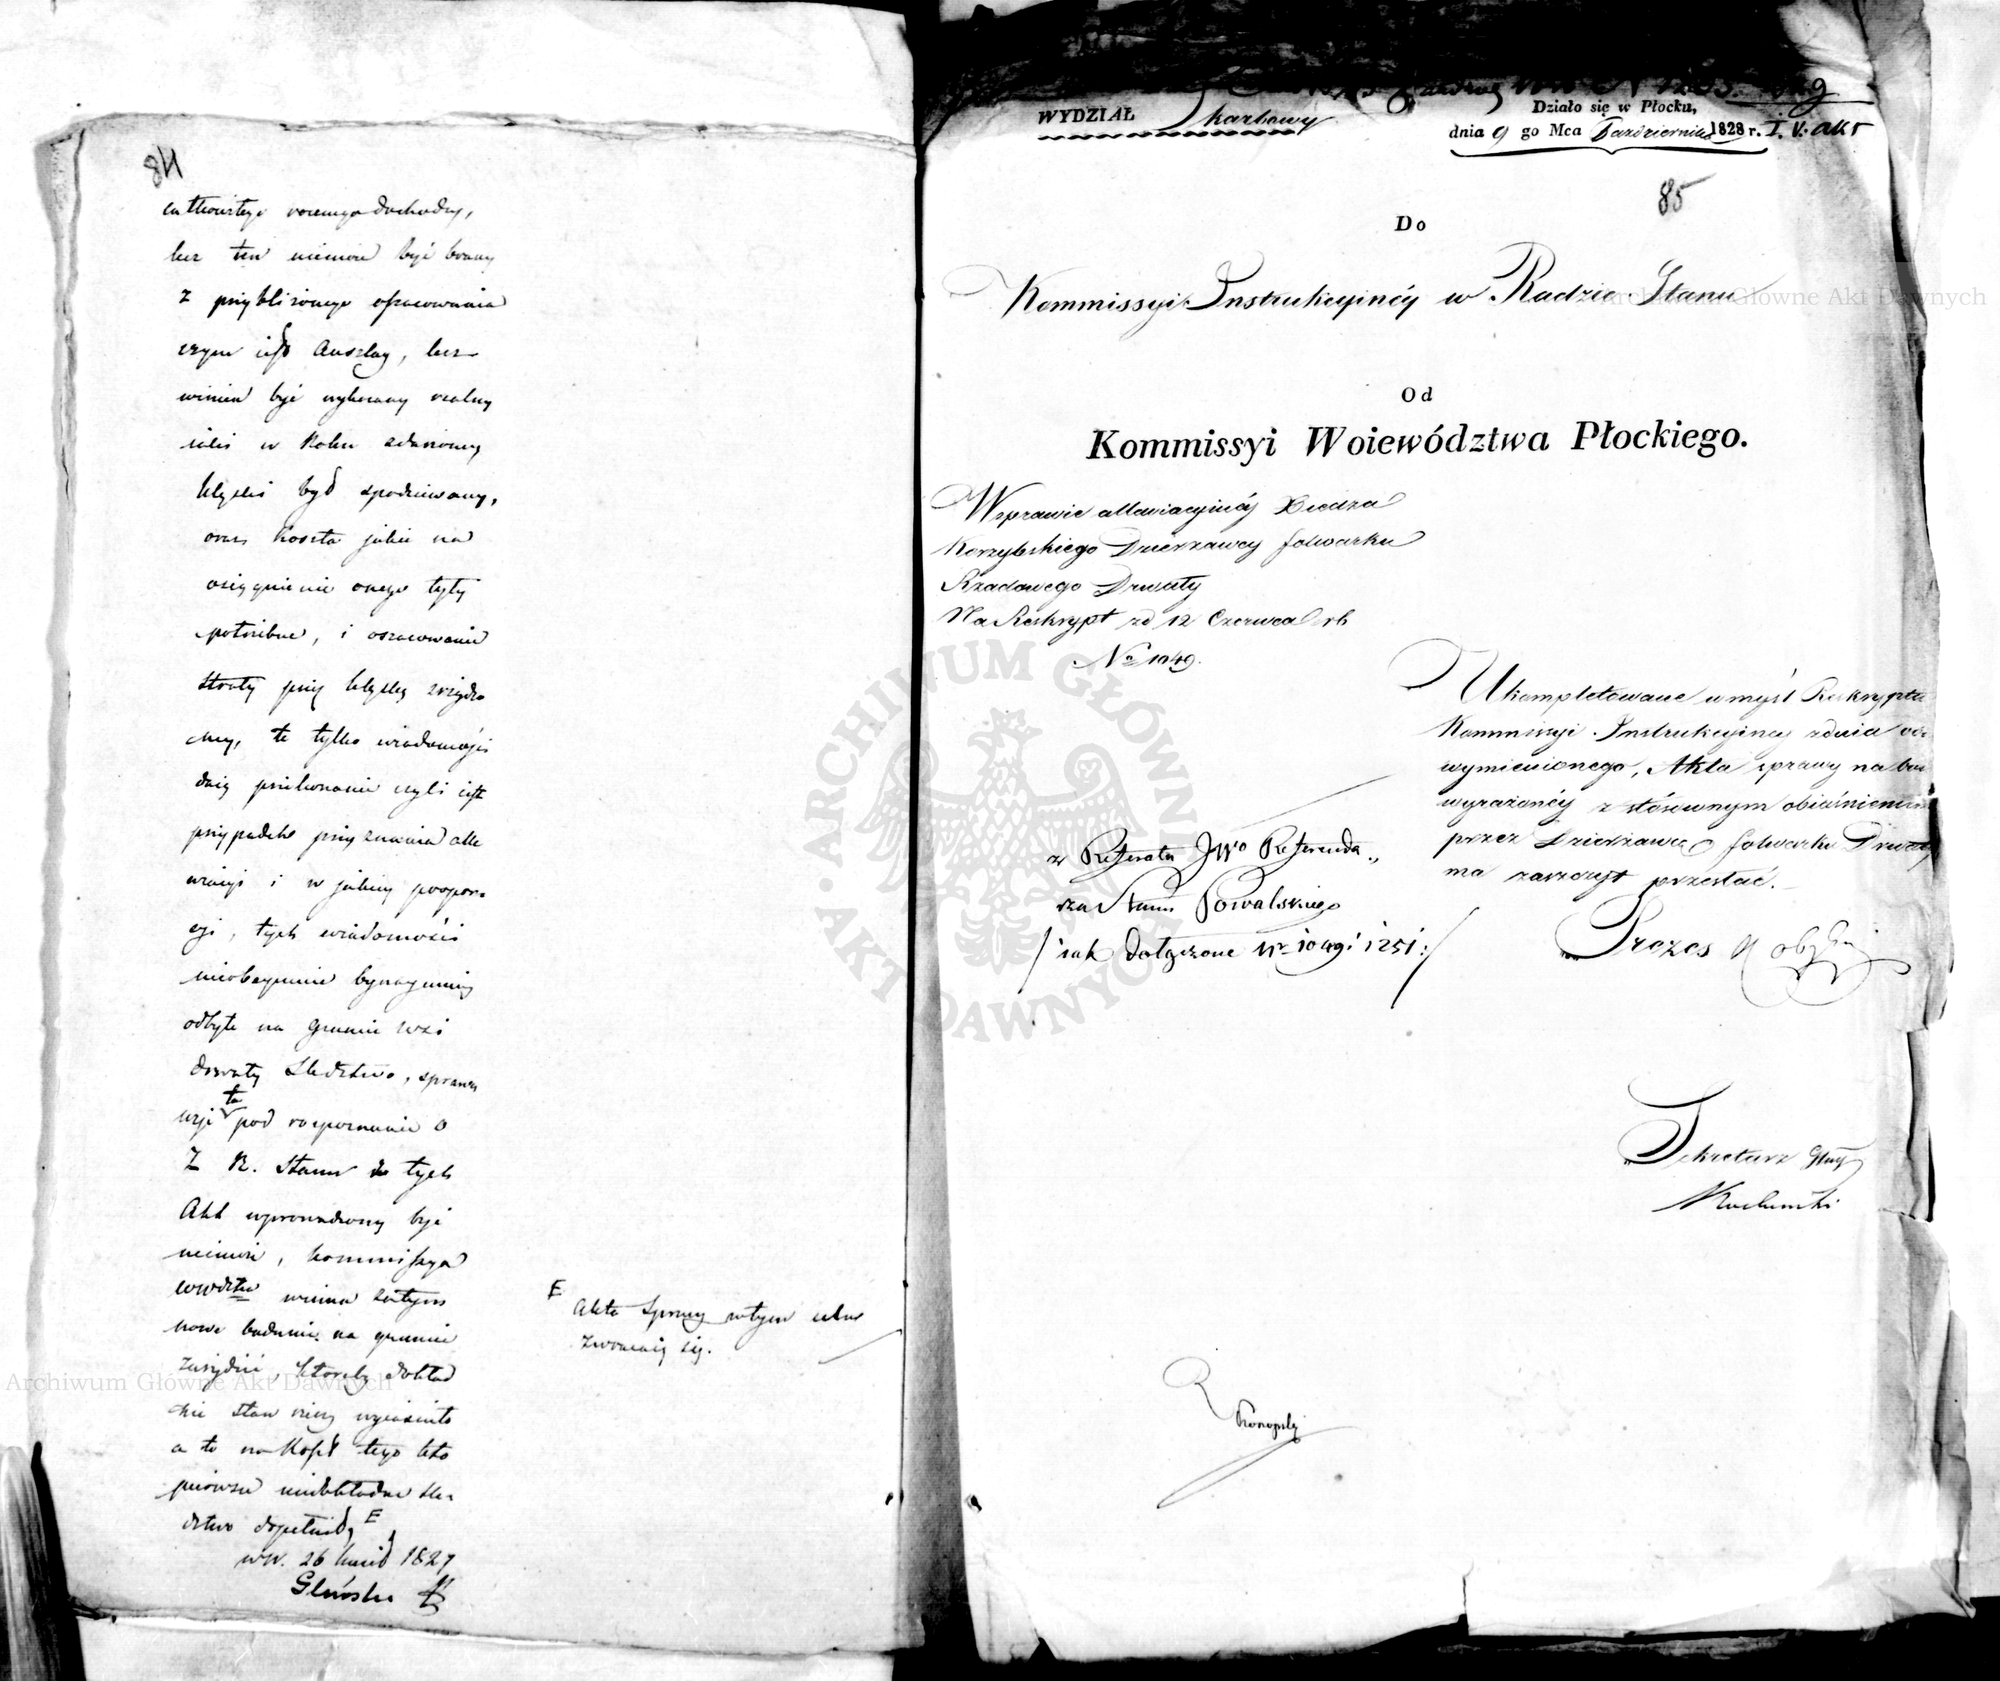 84
całkowitego rocznego dochodu,
lecz ten niemoże być brany
z przybliżonego oszacowania
czym jest Anszlag, lecz
winien być wykazany realny
jakiś w Roku zdarzonej
klęski był spodziewany,
oraz koszta jakie na
osiągnienie onego były
potrzebne, i oszacowanie
straty przez klęskę zrządzo
ney, te tylko wiadomości
dają przekonanie czyli jest
przypadek przyznania alle
wiacyi i w jakiey propor-
cyi, tych wiadomości
nieobeymuie bynaymniey
odbyte na gruncie wsi
Drwały Śledztwo, sprawa
ta
pod rozpoznanie O
Z R. Stanu z tych
Akt wprowadzoną być
niemoże, Kommissya
Wwdztwa winna zatym
nowe badanie na gruncie
zarządzić, któreby dokład
nie stan rzeczy wyjaśniło
a to na koszt tego kto
pierwsze niedokładne śle-
dztwo dopełnił, F
ww. 26 1827
F
Akta Sprawy w tym celu
zwracaią się.
WYDZIAŁ Skarbowy
Działo się w Płocku,
dnia 9 go Mca Października 1828 r. I. V. akt
85
Do
Kommissyi Instrukcyinéy w Radzie Stanu
Od
Kommissyi Woiewództwa Płockiego.
W sprawie allewiacyinéy
Korzybskiego Dzierżawcy folwarku
Rządowego Drwały
Na Reskrypt zd 12 Czerwca rb
No 1049.
Ukompletowane w myśl Reskryptu
Kommissyi Instrukcyiney z dnia
wymienionego, Akta sprawy na bok
wyrażonéy z stósownym obiaśnieniem
przez Dzierżawcę folwarku Drwały
ma zaszczyt przesłać.
z Referatu JWo Referenda-
rza Stanu Kowalskiego
/ iak dołączone Nr 1049 i 1251 :/
Prezes
Sekretarz
Konopely
Archiwum Główne Akt Dawnych
Archiwum Główne Akt Dawnych
ARCHIWUM GŁÓWNE AKT DAWNYCH